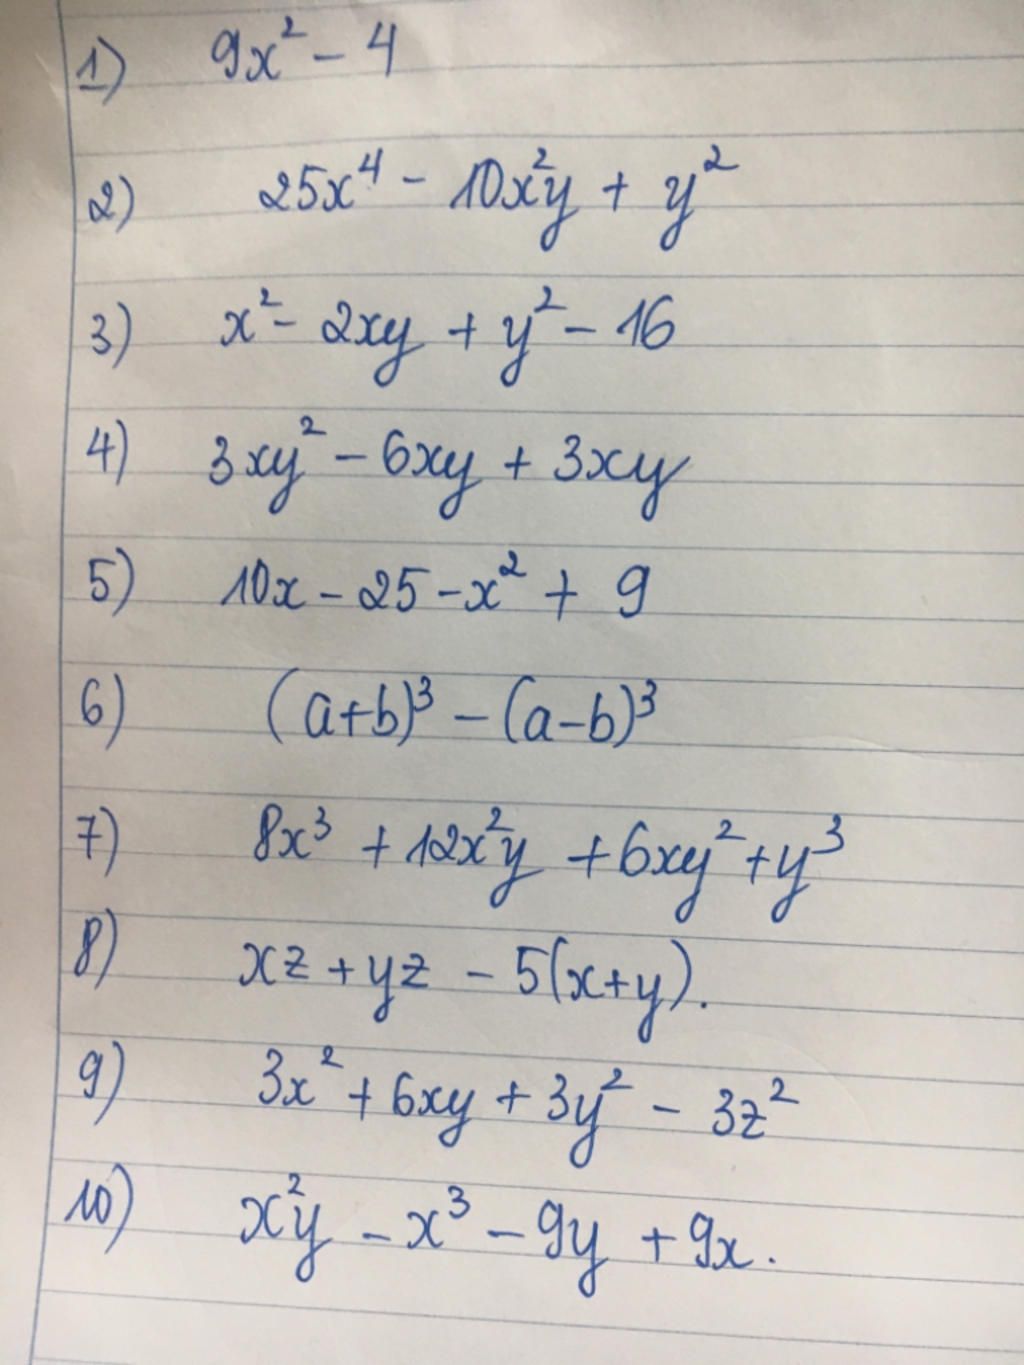 1) 9x² - 4
2) 25x⁴ - 10x²y + y²
3) x² - 2xy + y² - 16
4) 3xy² - 6xy + 3xy
5) 10x - 25 - x² + 9
6) (a+b)³ - (a-b)³
7) 8x³ + 12x²y + 6xy² + y³
8) xz + yz - 5(x+y).
9) 3x² + 6xy + 3y² - 3z²
10) x²y - x³ - 9y + 9x.